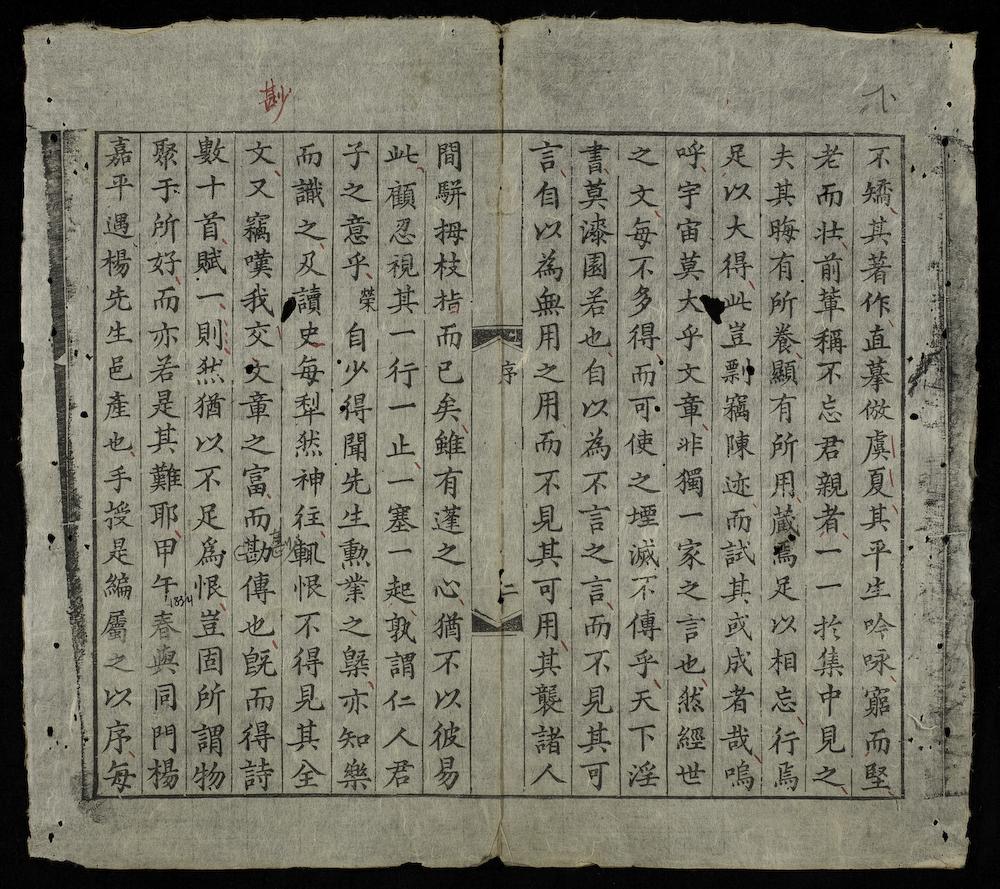 不矯其著作直摹倣虞夏其平生吟咏窮而堅
老而壯前軰稱不忘君親者一一於集中見之
夫其晦有所養顯有所用蔵焉足以相忘行焉
足以大得此豈剽竊陳迹而試其或成者哉嗚
呼宇宙莫大乎文章非獨一家之言也然經世
之文每不多得而可使之堙滅不傳乎天下淫
書莫漆園若也自以為不言之言而不見其可
言自以為無用之用而不見其可用其襲諸人
序
二
間駢拇枝指而已矣雖有蓬之心猶不以彼易
此顧忍視其一行一止一塞一起孰謂仁人君
子之意乎榮自少得聞先生勳業之槩亦知樂
而識之及讀史每犁然神往輒恨不得見其全
文又竊嘆我交文章之富而勘傳也旣而得詩
數十首賦一則然猶以不足爲恨豈固所謂物
聚于所好而亦若是其難耶甲午春與同門楊
嘉平遇楊先生邑產也手授是編屬之以序每
尠
1834